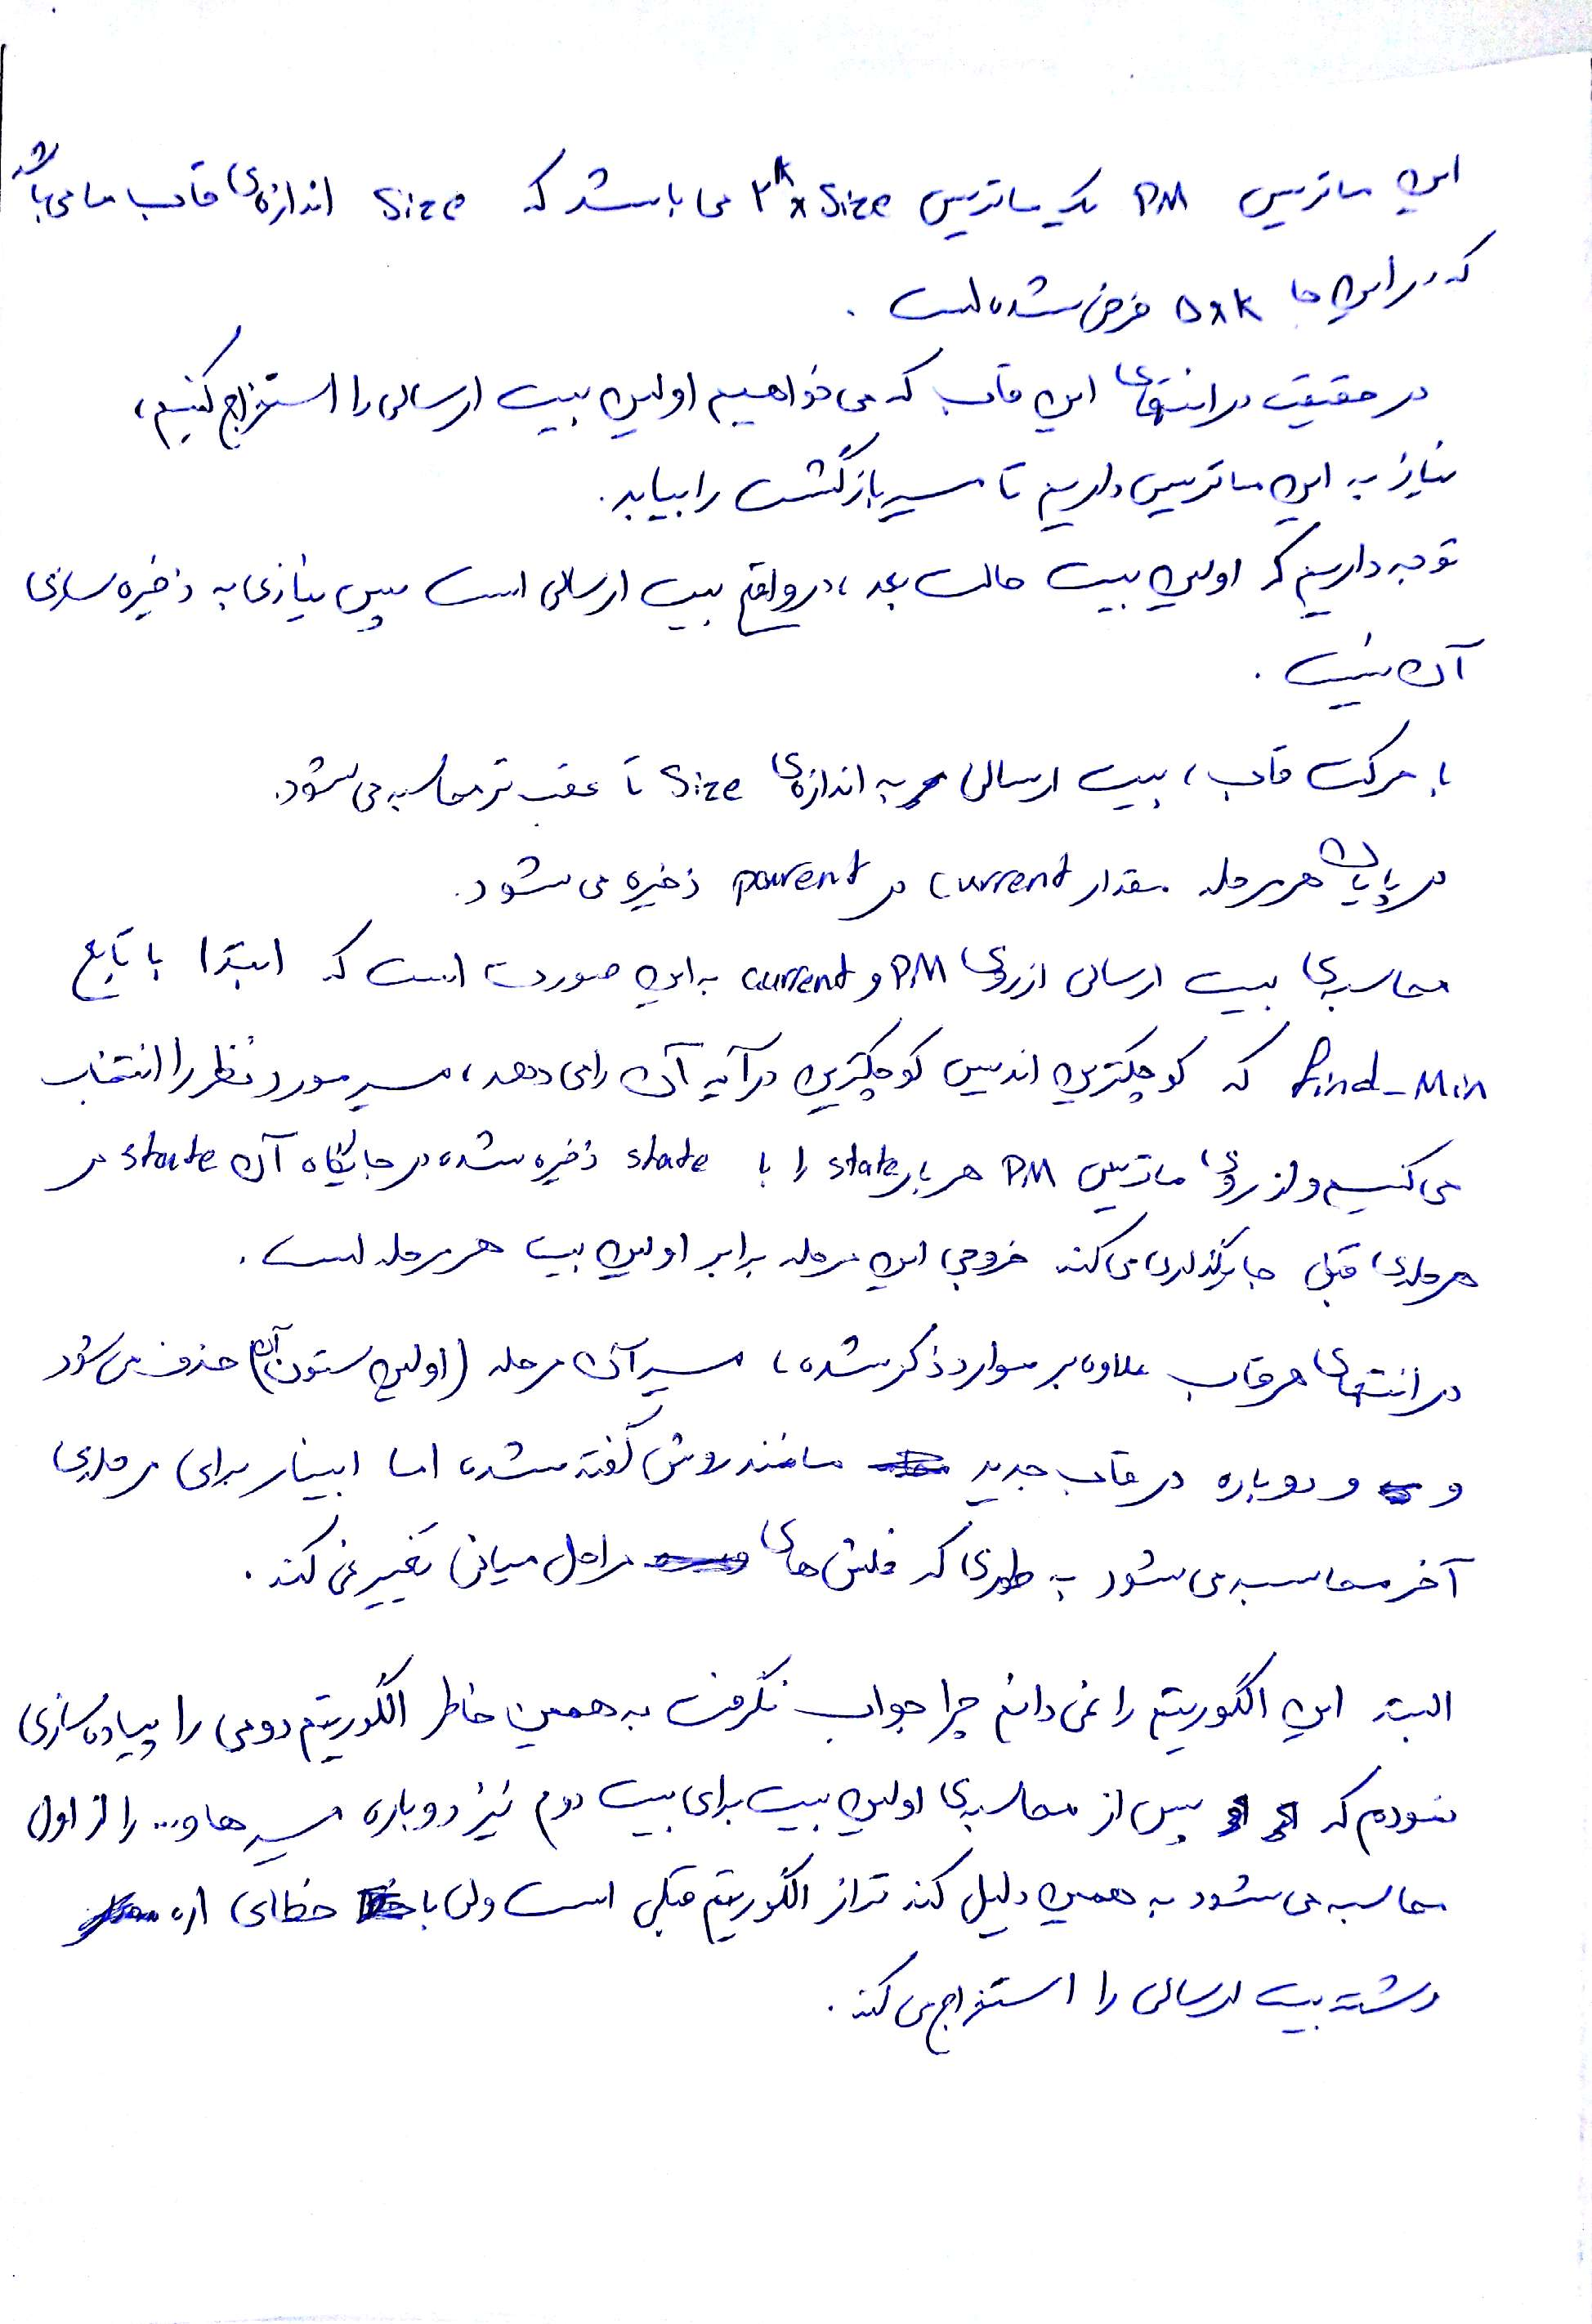 این ماتریس PM یک ماتریس ۲^k x Size می باشد که Size اندازه‌ی قاب ما می باشد
که در این جا ۵xk فرض شده است .
در حقیقت در انتهای این قاب که می خواهیم اولین بیت ارسالی را استخراج کنیم،
نیاز به این ماتریس داریم تا مسیر بازگشت را بیابد.
توجه داریم که اولین بیت حالت بعد ، در واقع بیت ارسالی است پس نیازی به ذخیره سازی
آن نیست .
با حرکت قاب ، بیت ارسالی به اندازه‌ی Size تا عقب تر محاسبه می شود.
در پایان هر مرحله مقدار current در parent ذخیره می شود.
محاسبه‌ی بیت ارسالی از روی PM و current به این صورت است که ابتدا با تابع
find-Min که کوچکترین اندیس کوچکترین درآیه آن را می دهد ، مسیر مورد نظر را انتخاب
می کنیم و از روی ماتریس PM هر بار state را با state ذخیره شده در جایگاه آن state در
مرحله‌ی قبل جایگذاری می کند خروجی این مرحله برابر اولین بیت هر مرحله است .
در انتهای هر قاب علاوه بر موارد ذکر شده ، مسیر آن مرحله (اولین ستون آن) حذف می شود
و و دوباره در قاب جدید مانند روش گفته شده، اما اینبار برای مرحله‌ی
آخر محاسبه می شود به طوری که های مراحل میانی تغییر نمی کند .
البته این الگوریتم را نمی دانم چرا جواب نگرفت به همین خاطر الگوریتم دومی را پیاده سازی
نمودم که پس از محاسبه‌ی اولین بیت برای بیت دوم نیز دوباره مسیر ها و... را از اول
محاسبه می شود به همین دلیل کند تر از الگوریتم قبلی است ولی با خطای
رشته بیت ارسالی را استخراج می کند .